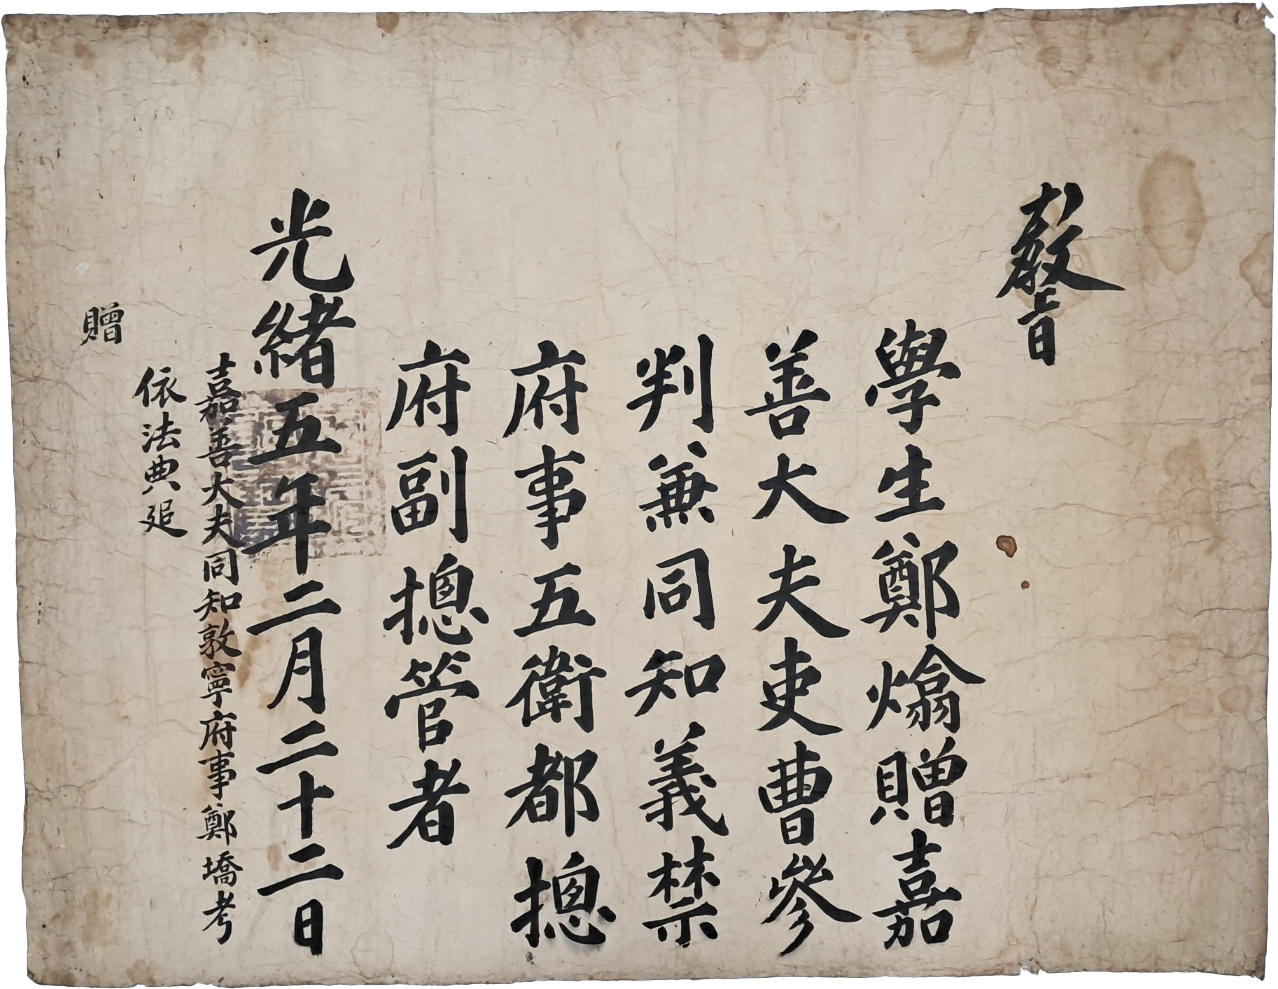 敎旨
學生鄭熻贈嘉
善大夫吏曹參
判兼同知義禁
府事五衛都摠
府副摠管者
光緖五年二月二十二日
嘉善大夫同知敦寧府事鄭考
依法典追
贈